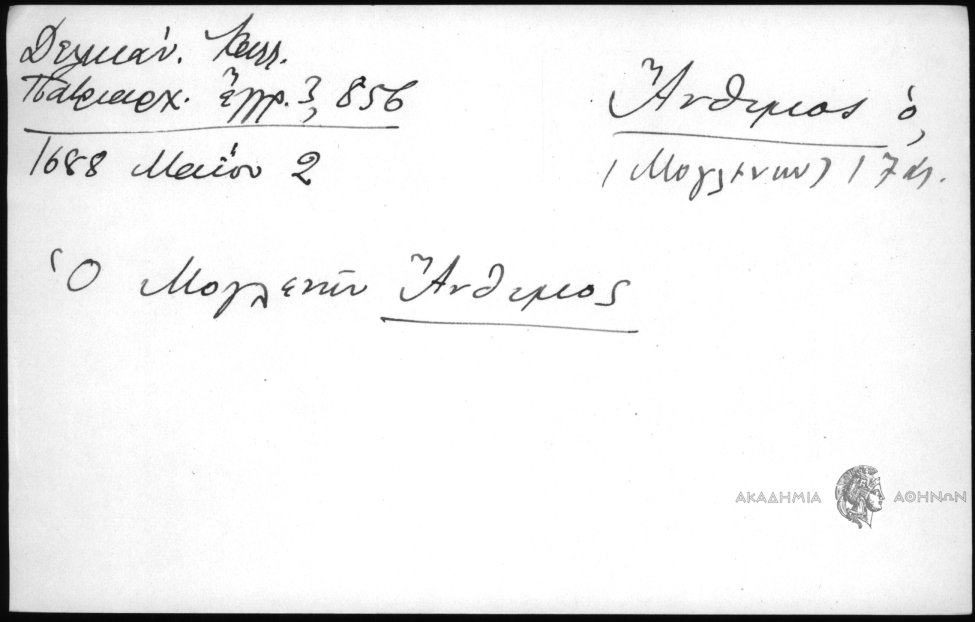 Δελικάν. Καλλ.
Πατριαρχ. Ἔγγρ. 3, 856
1688 Μαΐου 2
Ἄνθιμος ὁ,
(Μογλενῶν) 17 αἰ.
Ὁ Μογλενῶν Ἄνθιμος
ΑΚΑΔΗΜΙΑ ΑΘΗΝΩΝ